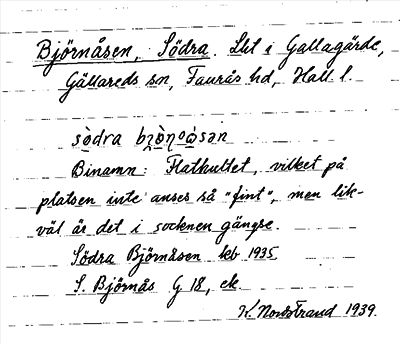 Björnåsen, Södra. Lht i Gallagärde,
Gällareds sn, Faurås hd, Hall. l.
södra
Binamn: Flathultet, vilket på
platsen inte anses så "fint", men lik-
väl är det i socknen gängse.
Södra Björnåsen kb 1935
S. Björnås G 18, ek.
K. Nordstrand 1939.